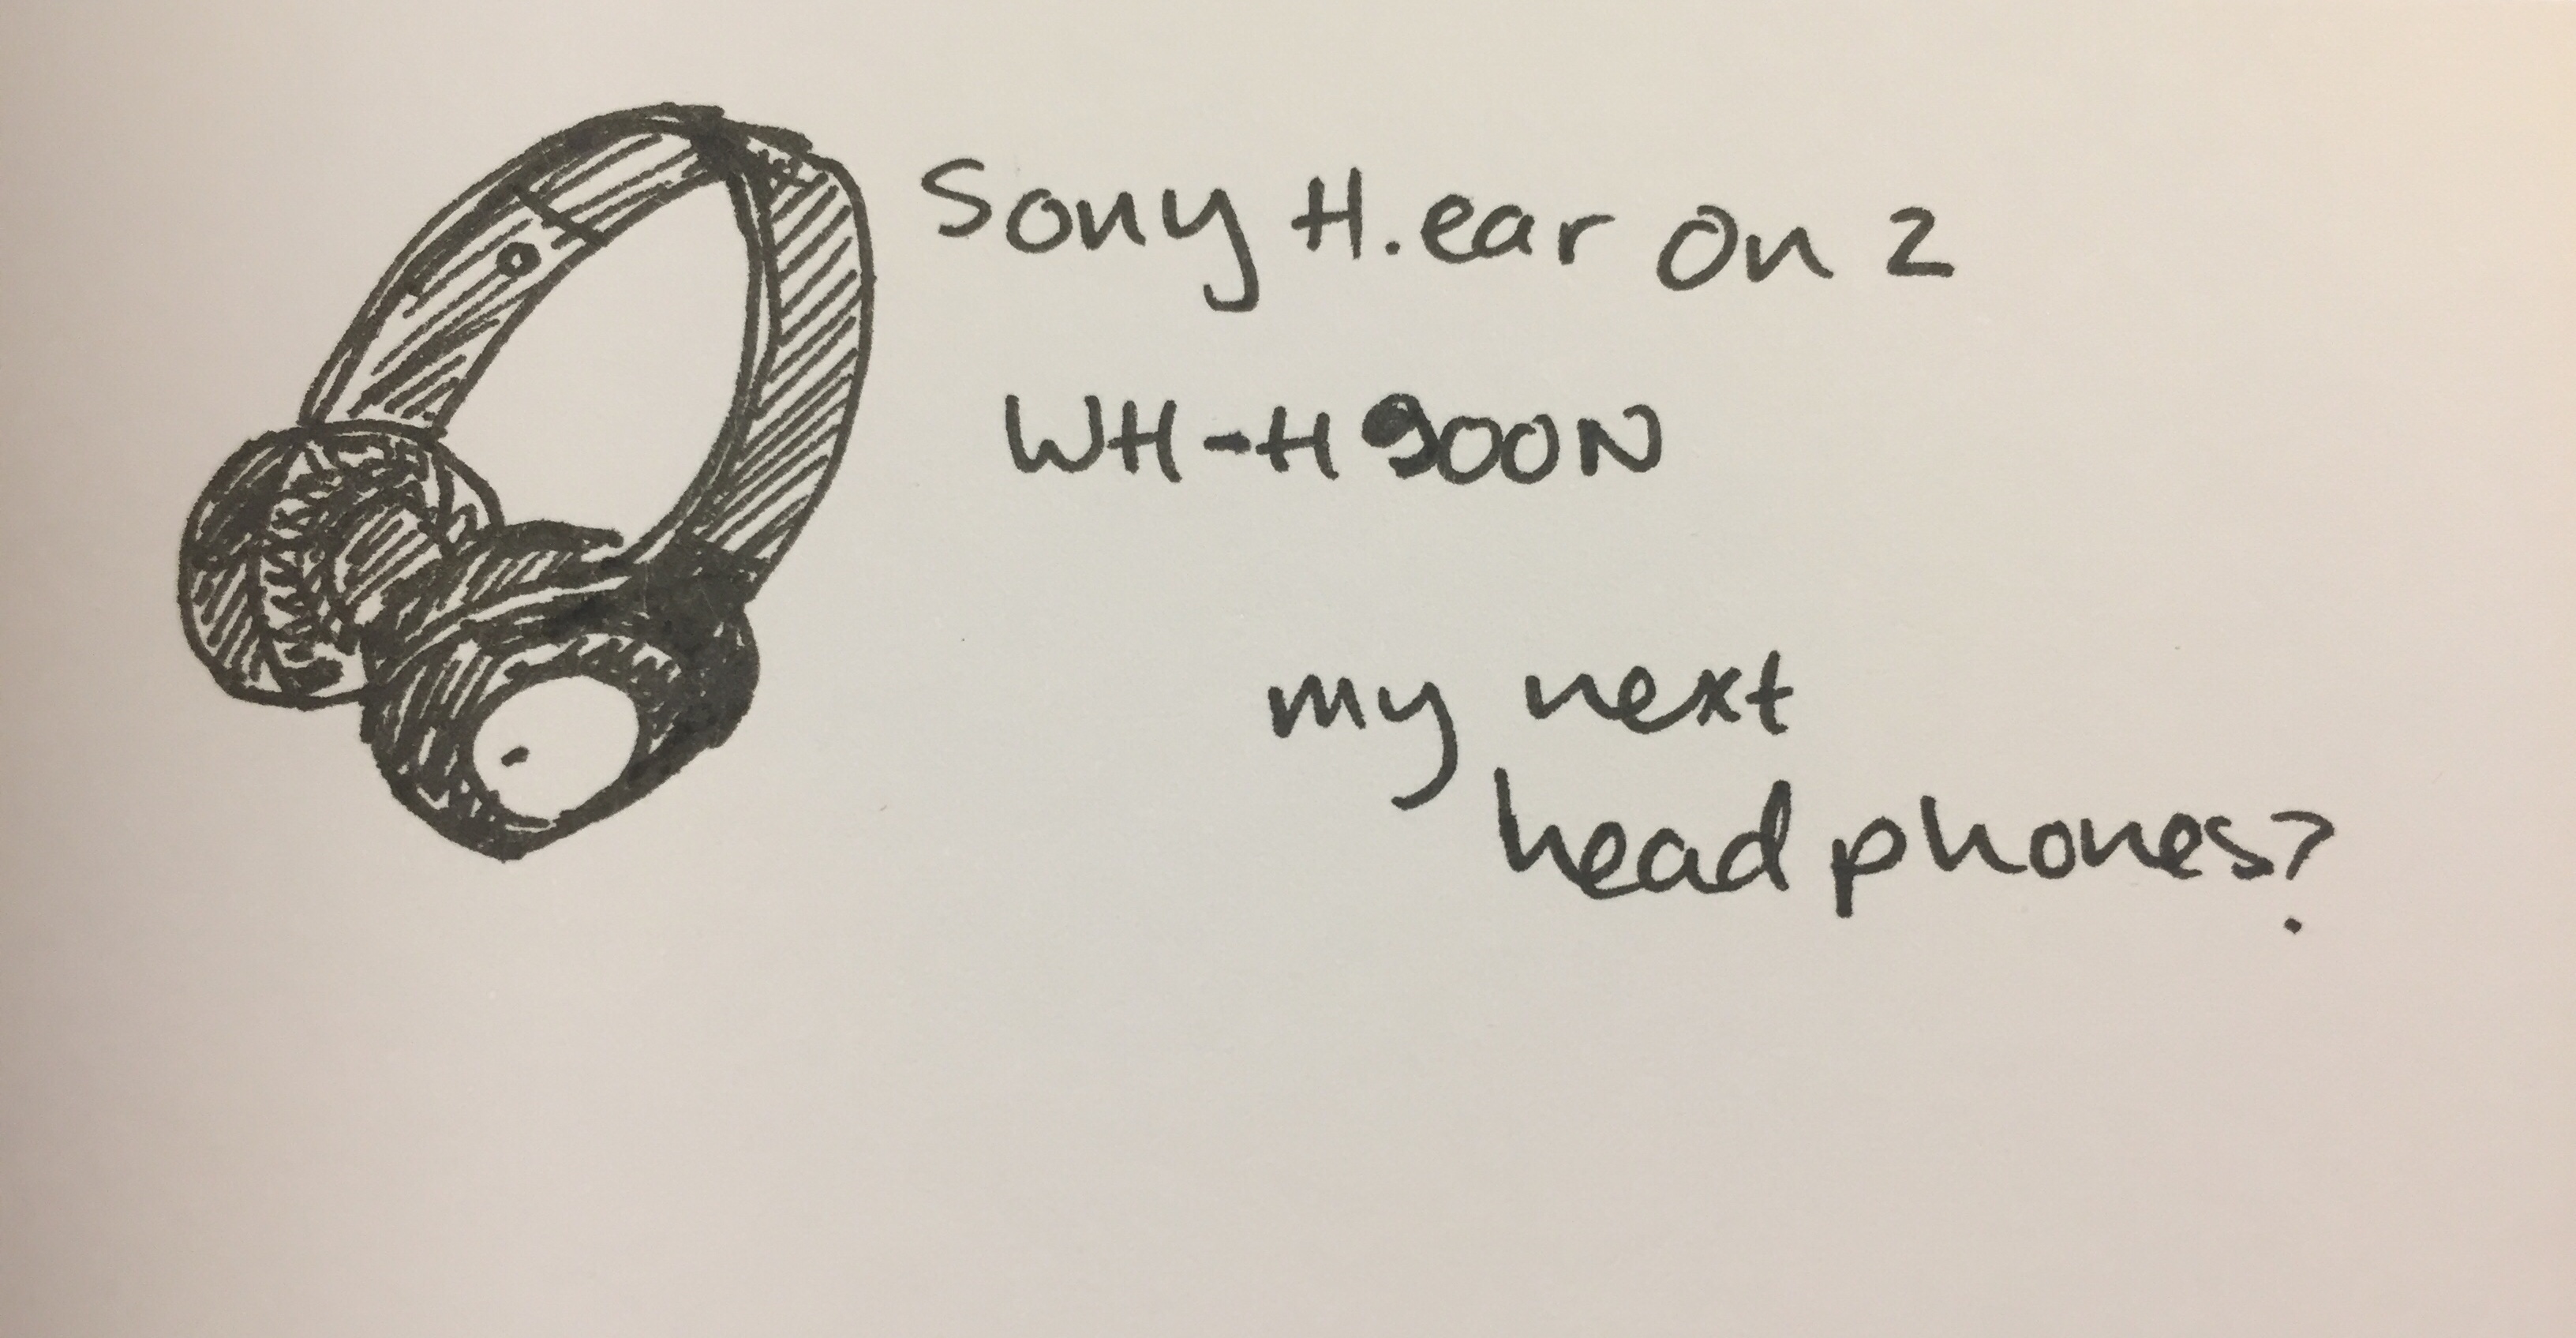 Sony H.ear on 2
WH-H900N
my next
head phones?